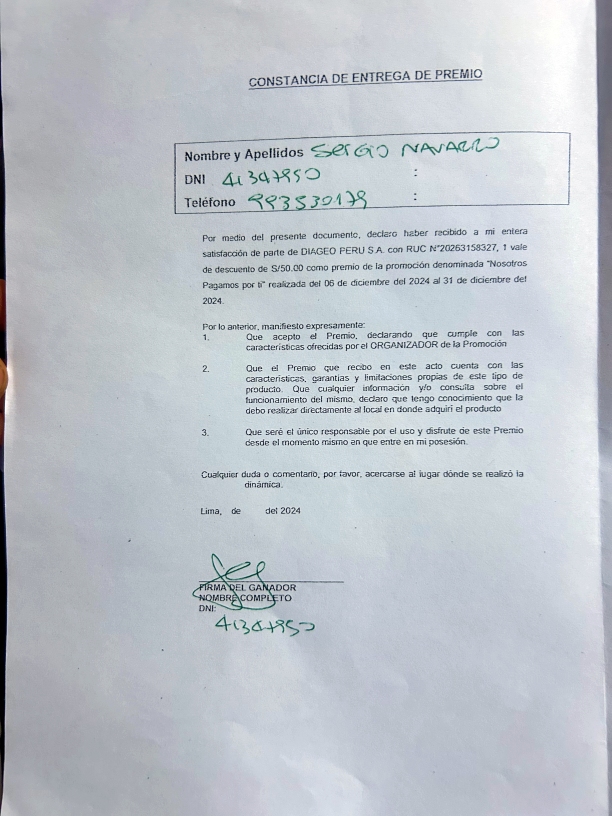 CONSTANCIA DE ENTREGA DE PREMIO
Nombre y Apellidos SerGIO NAVARRO
DNI 41347950 :
Teléfono 993530179 :
Por medio del presente documento, declaro haber recibido a mi entera
satisfacción de parte de DIAGEO PERU S.A. con RUC N°20263158327, 1 vale
de descuento de S/50.00 como premio de la promoción denominada "Nosotros
Pagamos por ti" realizada del 06 de diciembre del 2024 al 31 de diciembre del
2024.
Por lo anterior, manifiesto expresamente:
1. Que acepto el Premio, declarando que cumple con las
características ofrecidas por el ORGANIZADOR de la Promoción
2. Que el Premio que recibo en este acto cuenta con las
características, garantías y limitaciones propias de este tipo de
producto. Que cualquier información y/o consulta sobre el
funcionamiento del mismo, declaro que tengo conocimiento que la
debo realizar directamente al local en donde adquirí el producto
3. Que seré el único responsable por el uso y disfrute de este Premio
desde el momento mismo en que entre en mi posesión.
Cualquier duda o comentario, por favor, acercarse al lugar dónde se realizó la
dinámica.
Lima, de del 2024
FIRMA DEL GANADOR
NOMBRE COMPLETO
DNI:
41347950